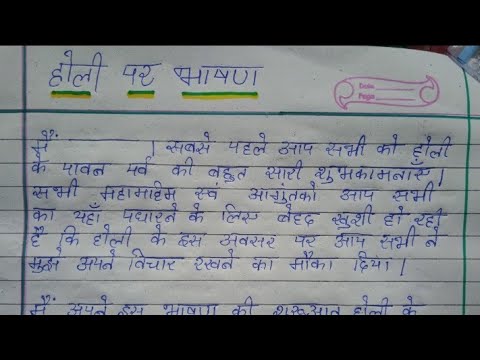 होली पर भाषण
Date
Page
मैं ________ | सबसे पहले आप सभी को होली
के पावन पर्व की बहुत सारी शुभकामनाएँ |
सभी महामहिम एवं आगुंतको आप सभी
का यहाँ पधारने के लिए बेहद खुशी हो रही
है कि होली के इस अवसर पर आप सभी ने
मुझे अपने विचार रखने का मौका दिया |
मैं अपने इस भाषण की शुरूआत होली के